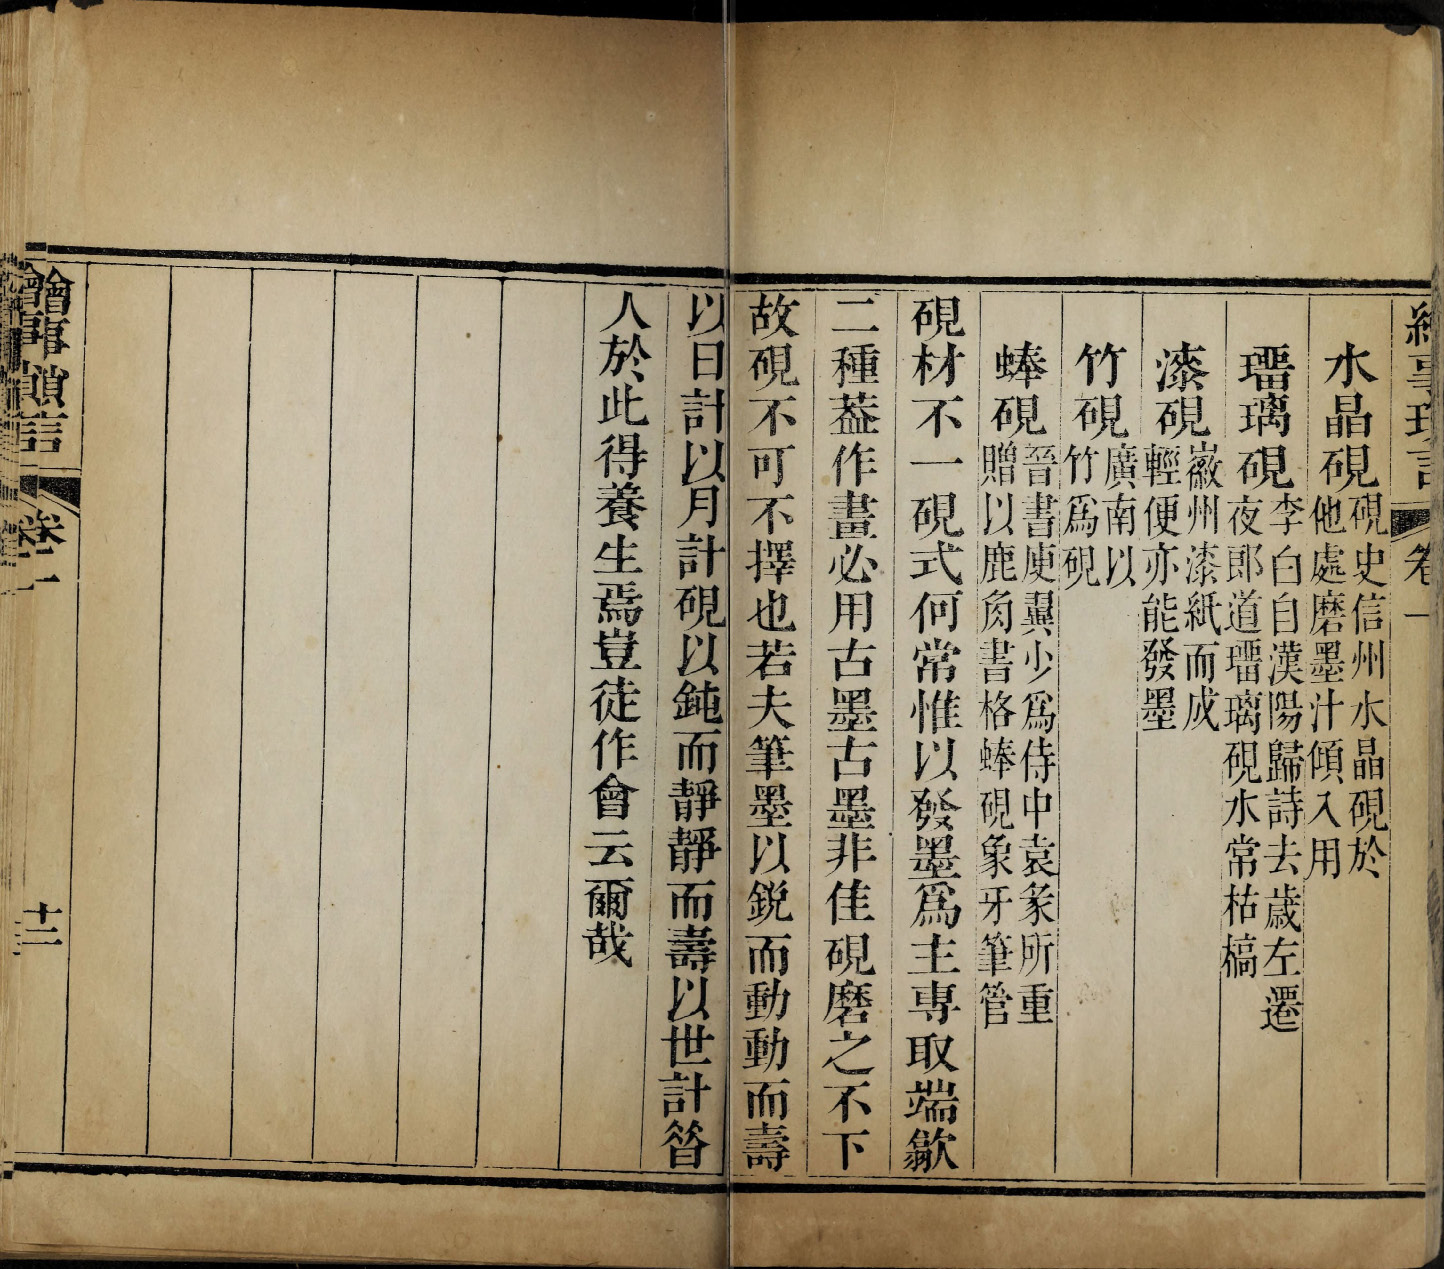 繪事瑣言 卷一
水晶硯 硯史信州水晶硯於
他處磨墨汁傾入用
瑠璃硯 李白自漢陽歸詩去歲左遷
夜郎道瑠璃硯水常枯槁
漆硯 徽州漆紙而成
輕便亦能發墨
竹硯 廣南以
竹爲硯
蜯硯 晉書庾翼少爲侍中袁彖所重
贈以鹿角書格蜯硯象牙筆管
硯材不一硯式何常惟以發墨爲主専取端歙
二種葢作畫必用古墨古墨非佳硯磨之不下
故硯不可不擇也若夫筆墨以鋭而動動而壽
以日計以月計硯以鈍而靜靜而壽以世計昝
人於此得養生焉豈徒作會云爾哉
繪事瑣言 卷一 十二